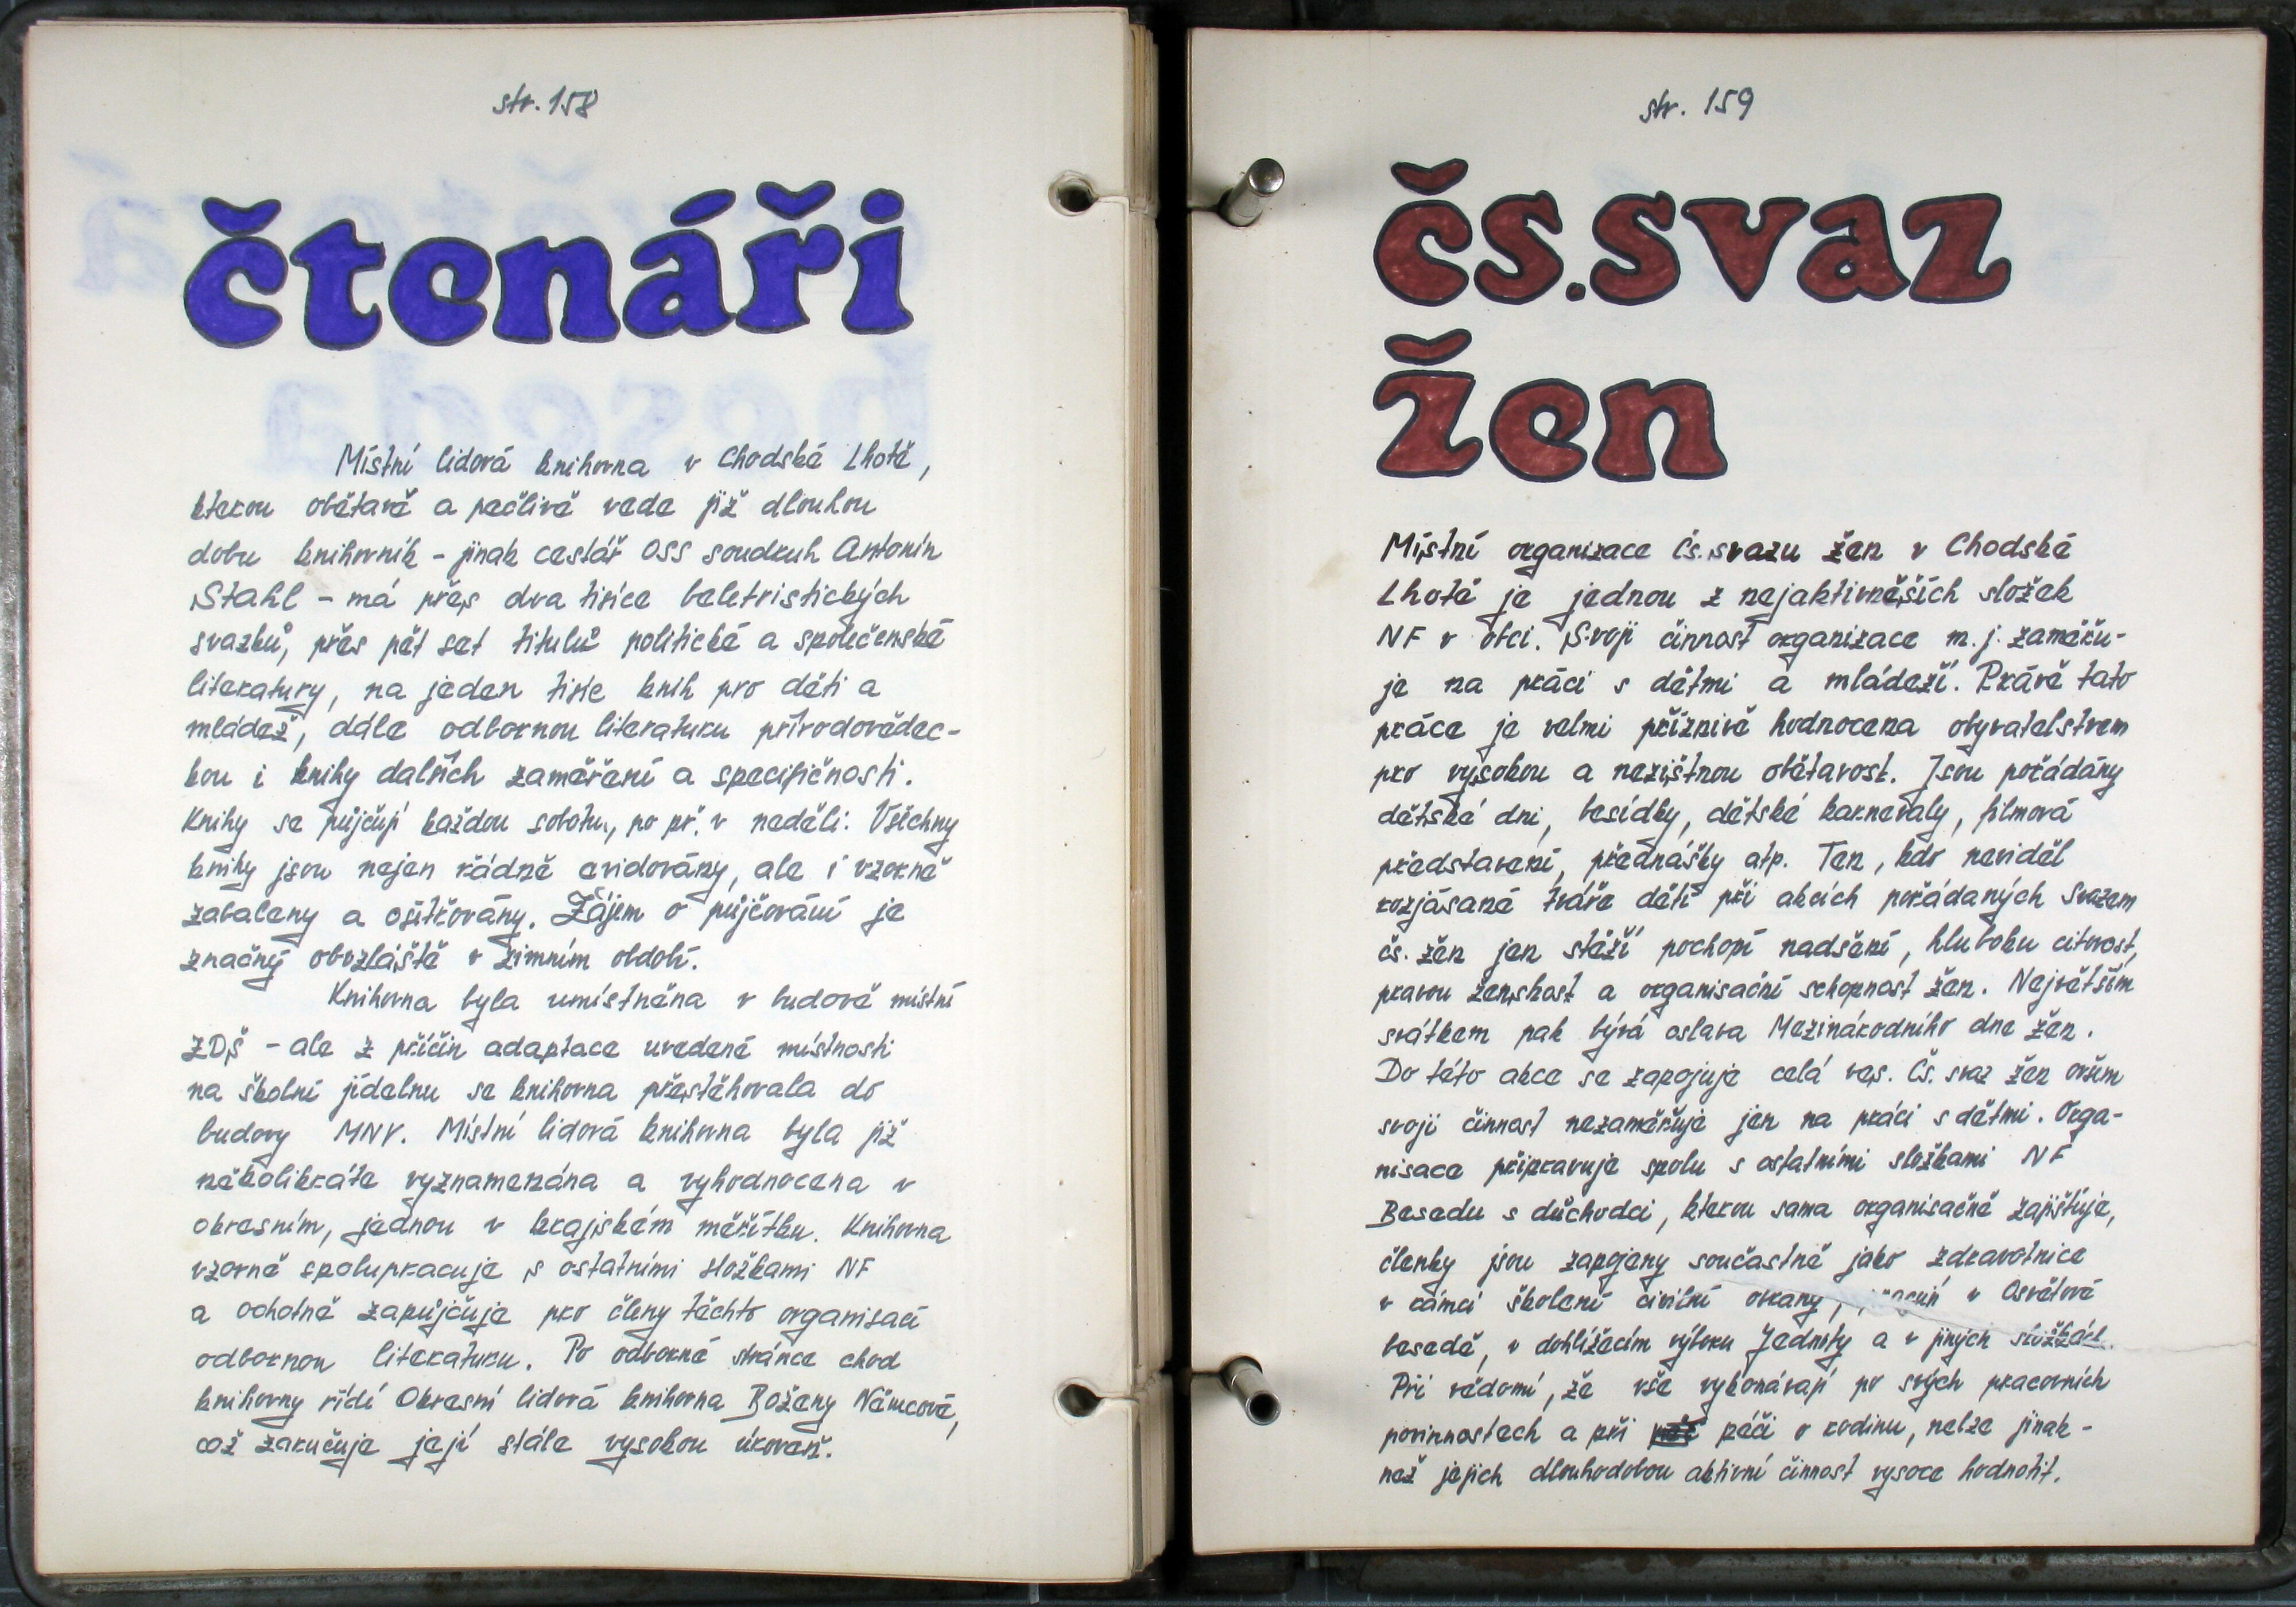 str. 158
čtenáři
Místní lidová knihovna v Chodské Lhotě,
kterou obětavě a pečlivě vede již dlouhou
dobu knihovník - jinak cestář OSS soudruh Antonín
Stahl - má přes dva tisíce beletristických
svazků, přes pět set titulů politické a společenské
literatury, na jeden tisíc knih pro děti a
mládež, dále odbornou literaturu přírodovědec-
kou i knihy dalších zaměření a specifičnosti.
Knihy se půjčují každou sobotu, po př. v neděli. Všechny
knihy jsou nejen řádně evidovány, ale i vzorně
zabaleny a ošítkovány. Zájem o půjčování je
značný obvzláště v zimním období.
Knihovna byla umístněna v budově místní
ZDŠ - ale z příčin adaptace uvedené místnosti
na školní jídelnu se knihovna přestěhovala do
budovy MNV. Místní lidová knihovna byla již
několikráte vyznamenána a vyhodnocena v
okresním, jednou v krajském měřítku. Knihovna
vzorně spolupracuje s ostatními složkami NF
a ochotně zapůjčuje pro členy těchto organisací
odbornou literaturu. Po odborné stránce chod
knihovny řídí Okresní lidová knihovna Boženy Němcové,
což zaručuje její stále vysokou úroveň.
str. 159
čs.svaz
žen
Místní organizace Čs. svazu žen v Chodské
Lhotě je jednou z nejaktivněších složek
NF v obci. Svoji činnost organizace m. j. zaměřu-
je na práci s dětmi a mládeží. Právě tato
práce je velmi příznivě hodnocena obyvatelstvem
pro vysokou a nezištnou obětavost. Jsou pořádány
dětské dni, besídky, dětské karnevaly, filmová
představení, přednášky atp. Ten, kdo neviděl
rozjásané tváře dětí při akcích pořádaných Svazem
čs. žen jen stěží pochopí nadšení, hluboku citovost,
pravou ženskost a organisační schopnost žen. Největším
svátkem pak bývá oslava Mezinárodního dne žen.
Do této akce se zapojuje celá ves. Čs. svaz žen ovšem
svoji činnost nezaměřuje jen na práci s dětmi. Orga-
nisace připravuje spolu s ostatními složkami NF
Besedu s důchodci, kterou sama organisačně zajišťuje,
členky jsou zapojeny součastně jako zdravotnice
v rámci školení civilní obrany, v Osvětové
besedě, v dohlížecím výboru Jednoty a v jiných složkách.
Při vědomí, že vše vykonávají po svých pracovních
povinnostech a při péči o rodinu, nelze jinak -
než jejich dlouhodobou aktivní činnost vysoce hodnotit.